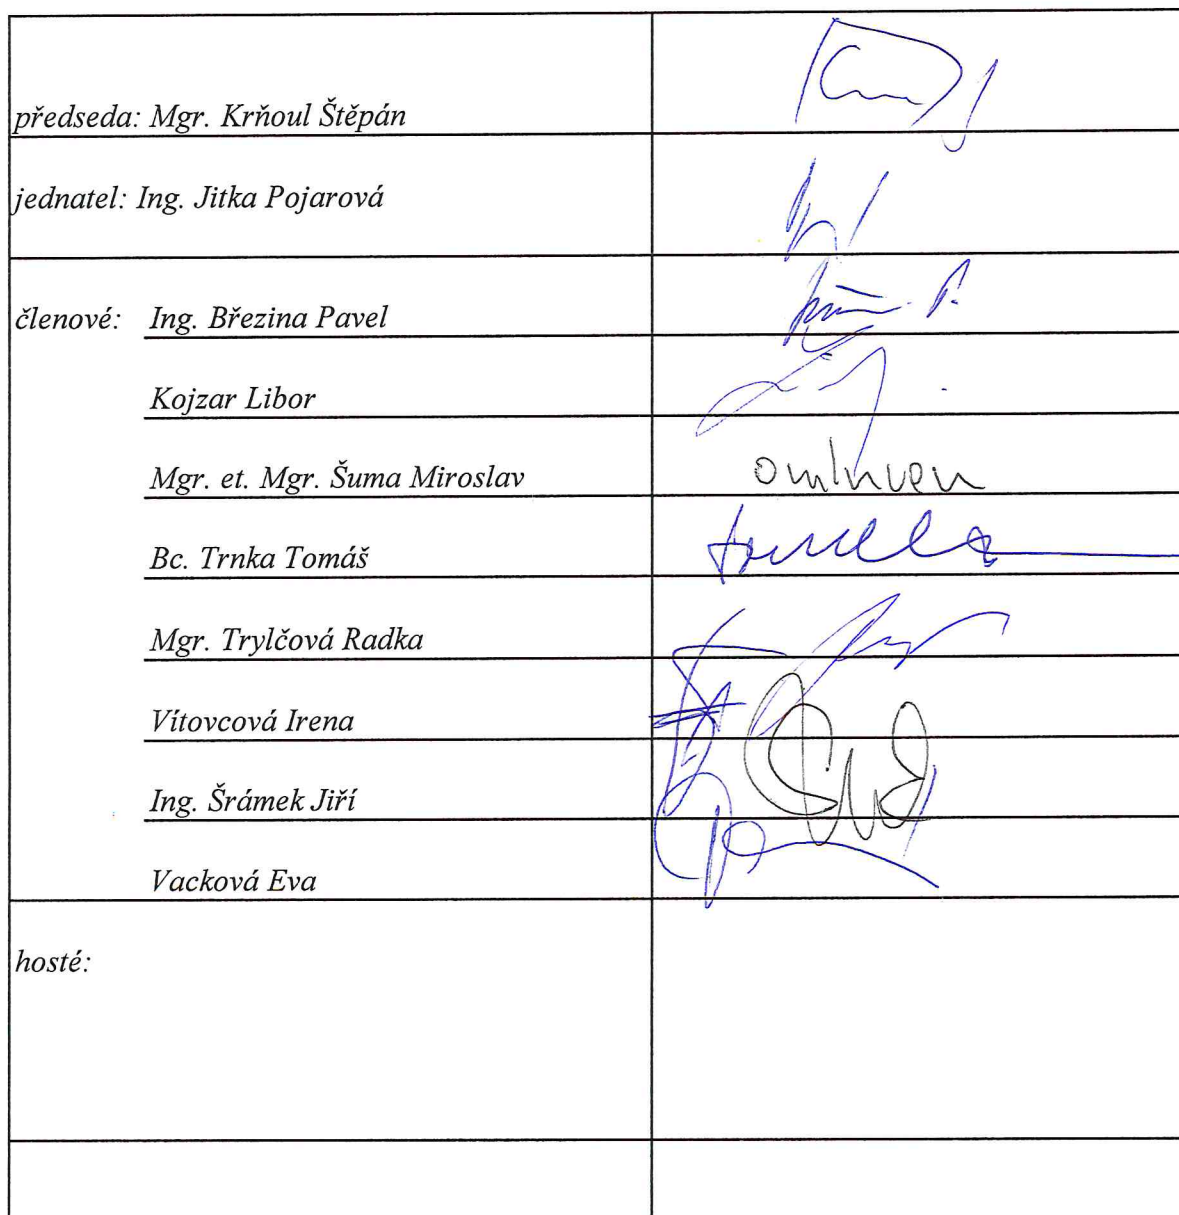 předseda: Mgr. Krňoul Štěpán
jednatel: Ing. Jitka Pojarová
členové: Ing. Březina Pavel
Kojzar Libor
Mgr. et. Mgr. Šuma Miroslav omluven
Bc. Trnka Tomáš
Mgr. Trylčová Radka
Vítovcová Irena
Ing. Šrámek Jiří
Vacková Eva
hosté: